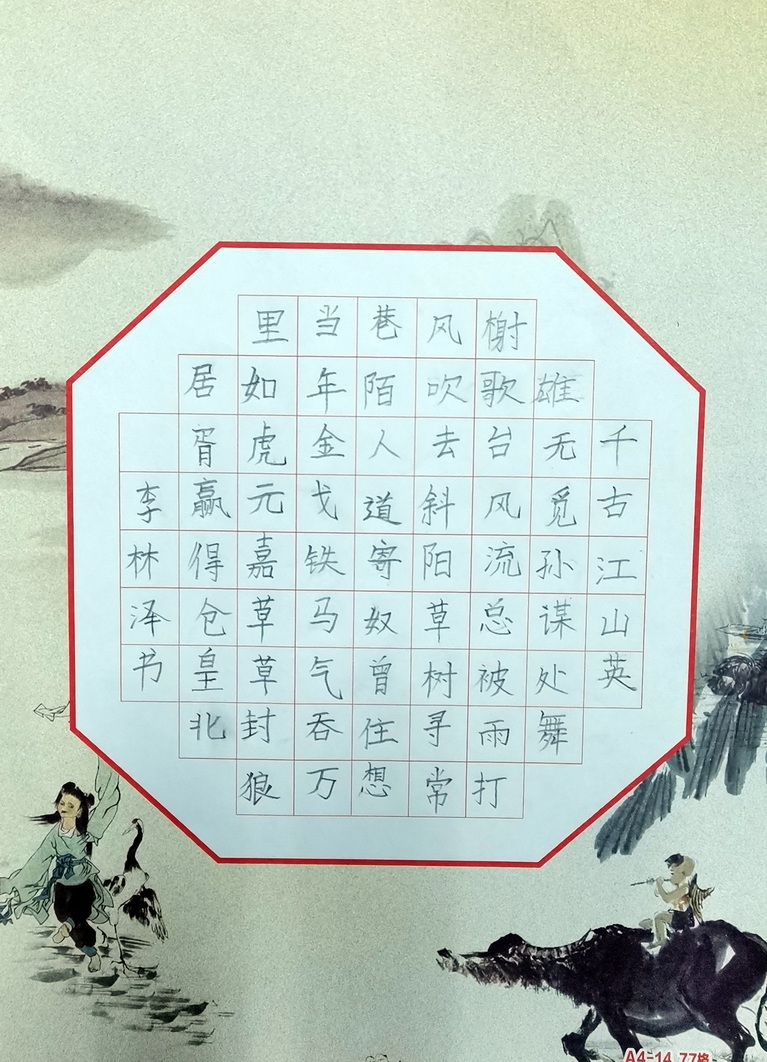 千古江山英
雄无觅孙谋处舞
榭歌台风流总被雨打
风吹去斜阳草树寻常
巷陌人道寄奴曾住想
当年金戈铁马气吞万
里如虎元嘉草草封狼
居胥赢得仓皇北
李林泽书
A4-14 77格